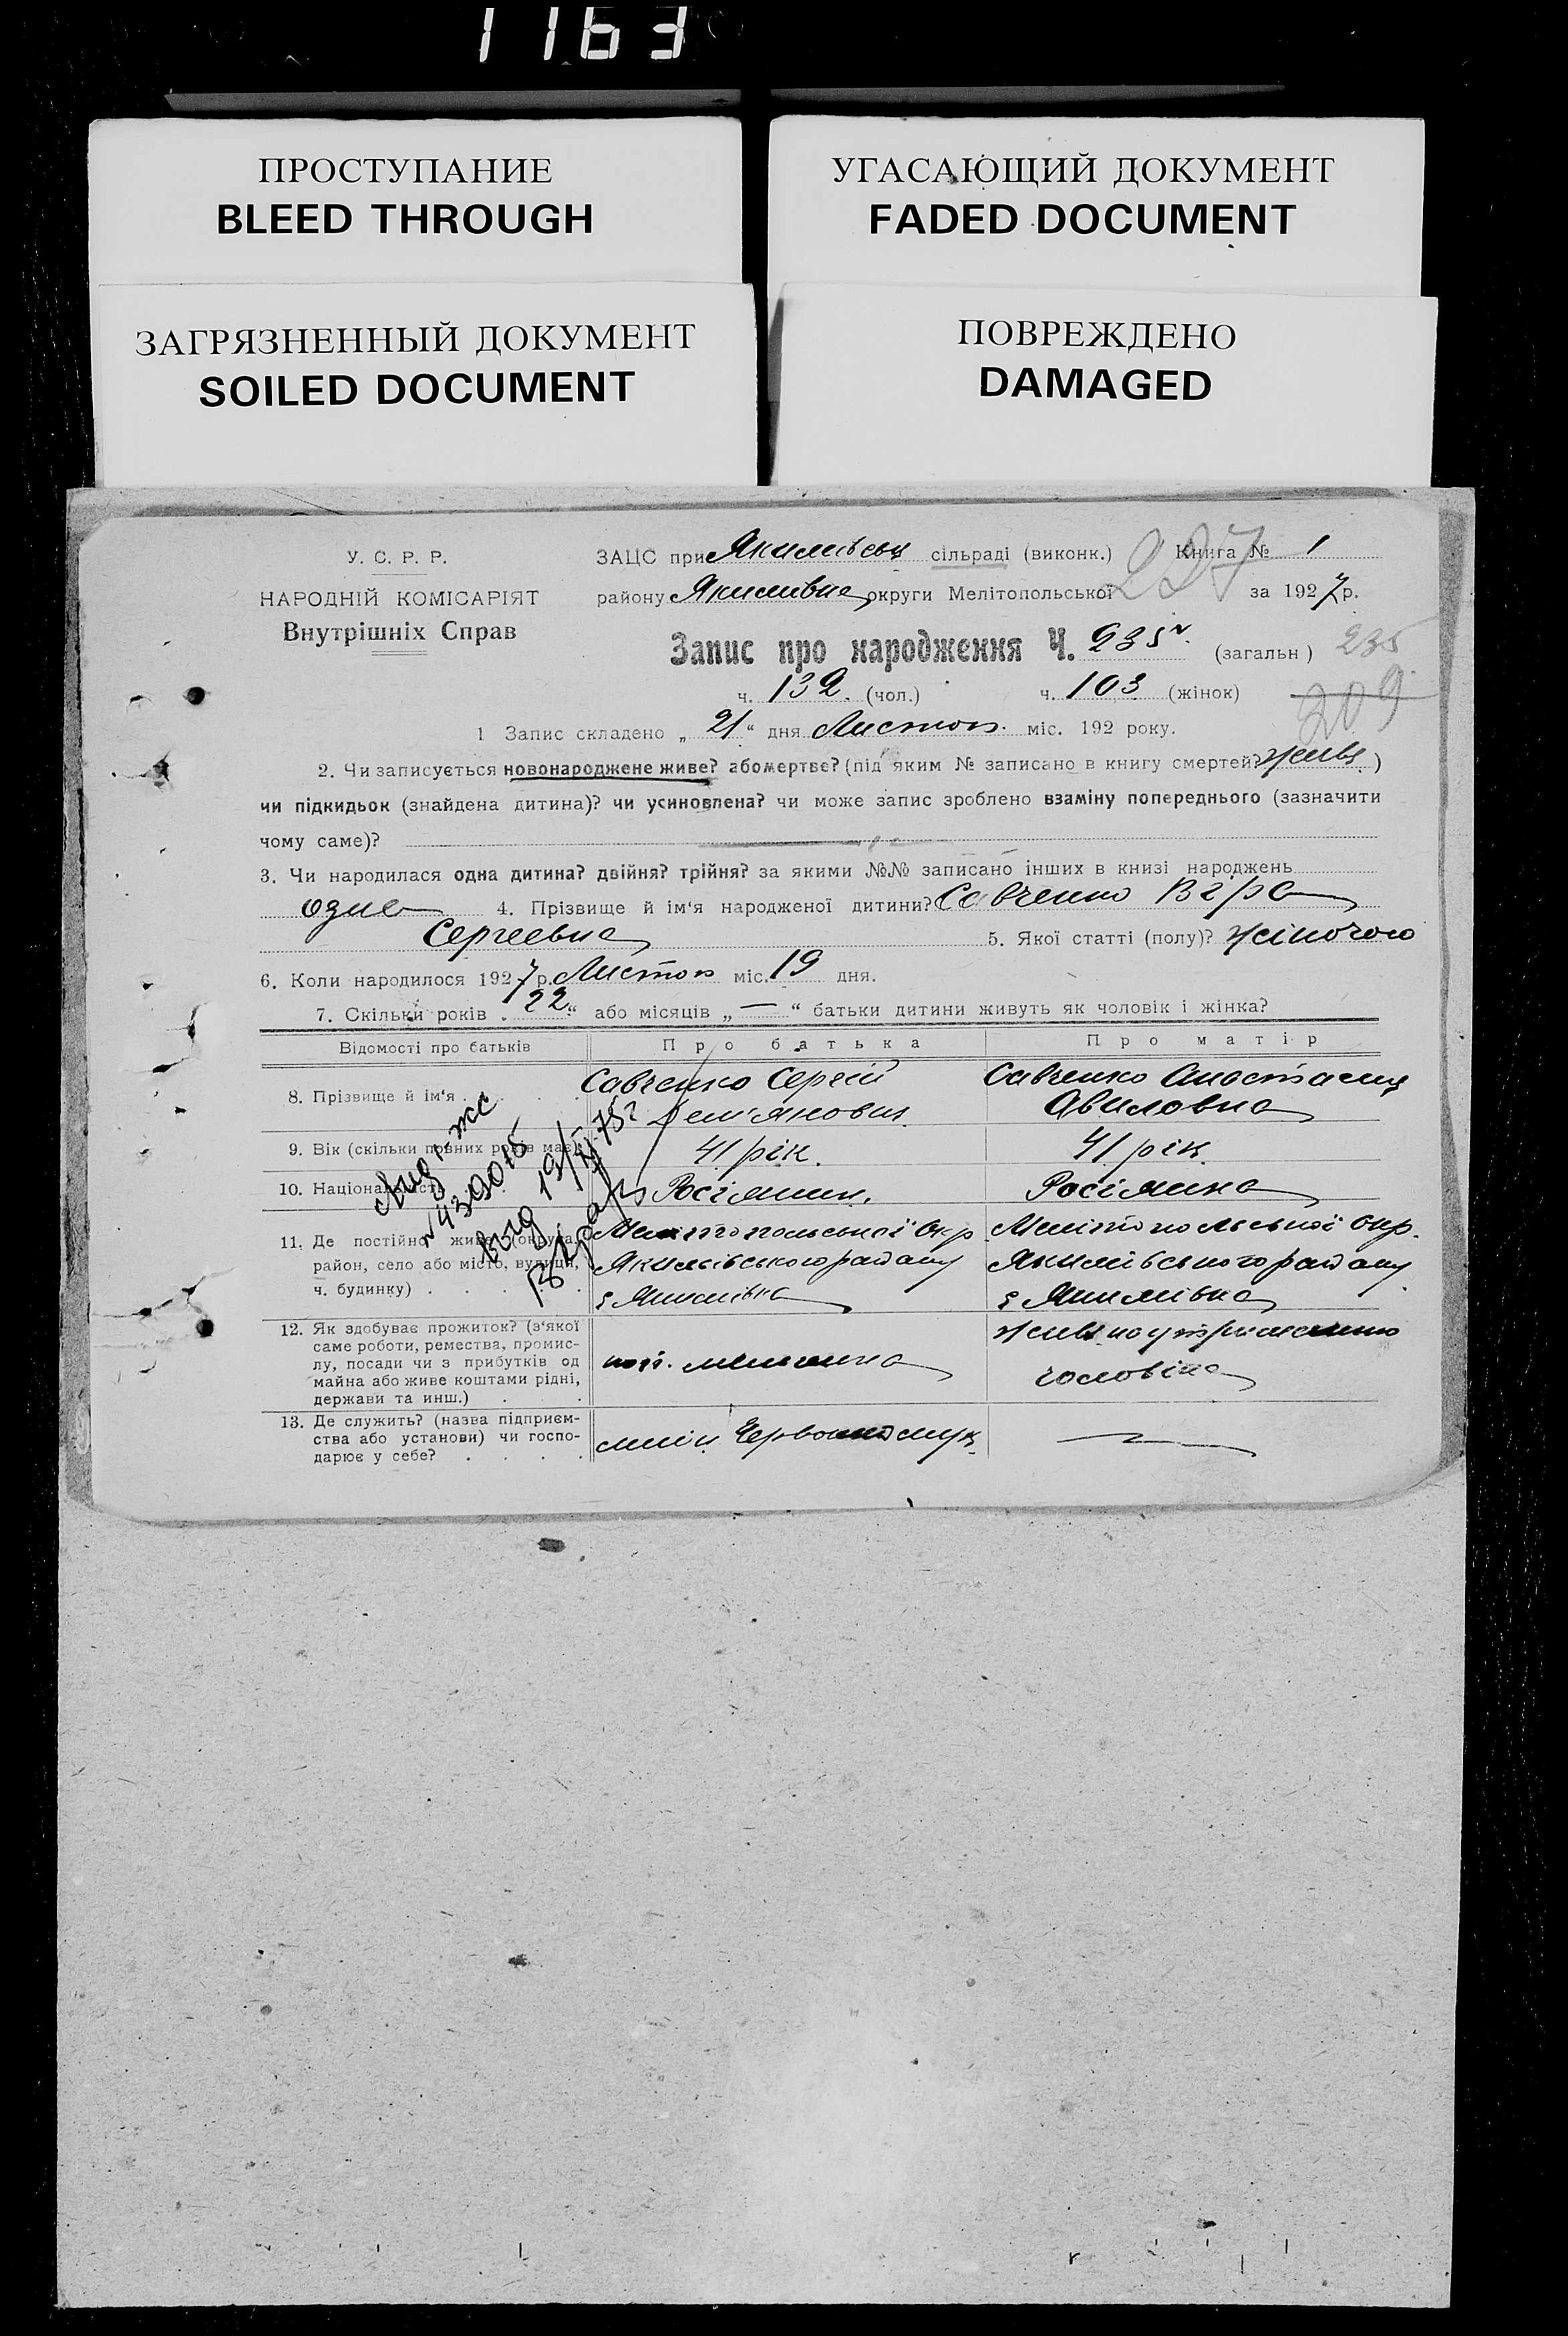 1163
ПРОСТУПАНИЕ
BLEED THROUGH
УГАСАЮЩИЙ ДОКУМЕНТ
FADED DOCUMENT
ЗАГРЯЗНЕННЫЙ ДОКУМЕНТ
SOILED DOCUMENT
ПОВРЕЖДЕНО
DAMAGED
У. С. Р. Р.
НАРОДНІЙ КОМІСАРІЯТ
Внутрішніх Справ
ЗАЦС при Якимівськ сільраді (виконк.) Книга № 1
227
району Якимівка округи Мелітопольської за 1927 р.
Запис про народження Ч. 235 (загальн) 235
ч. 132 (чол.) ч. 103 (жінок)
209
1 Запис складено „ 21 “ дня Листоп. міс. 192 року.
2. Чи записується новонароджене живе? або мертве? (під яким № записано в книгу смертей? живе )
чи підкидьок (знайдена дитина)? чи усиновлена? чи може запис зроблено взаміну попереднього (зазначити
чому саме)?
3. Чи народилася одна дитина? двійня? трійня? за якими №№ записано інших в книзі народжень
одна 4. Прізвище й ім‘я народженої дитини? Савченко Віра
Сергеевна 5. Якої статті (полу)? жіночого
6. Коли народилося 1927 р. Листоп міс. 19 дня.
7. Скільки років „ 22 “ або місяців „ — “ батьки дитини живуть як чоловік і жінка?
Відомості про батьків Про батька Про матір
8. Прізвище й ім‘я . . . . Савченко Сергій Дем'янович Савченко Анастасия Авиловна
9. Вік (скільки повних років має) 41 рік. 41 рік
10. Національність Росіянин. Росіянка
11. Де постійно живе (округа, район, село або місто, вулиця, ч. будинку) . . . . Мелітопольської Окр Якимівського району с Якимівка Мелітопольської окр. Якимівського району с Якимівка
12. Як здобуває прожиток? (з‘якої саме роботи, ремества, промислу, посади чи з прибутків од майна або живе коштами рідні, держави та инш.) . . живе на утриманню чоловіка
13. Де служить? (назва підприємства або установи) чи господарює у себе? . . . . млин —
№ 439015
від 19/